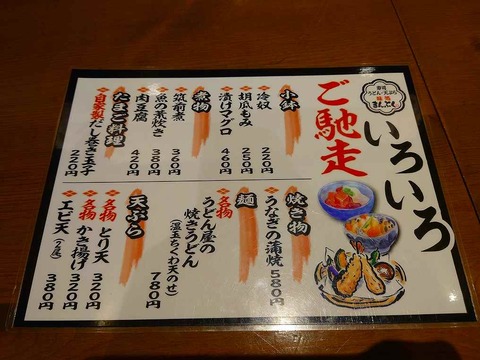 ご馳走
いろいろ
寿司
うどん・天ぷら
小鉢
冷奴 220円
胡瓜もみ 250円
漬けマグロ 460円
煮物
筑前煮 360円
魚の煮炊き 380円
肉豆腐 420円
たまご料理
自家製だし巻き玉子 220円
焼き物
うなぎの蒲焼 580円
麺
名物 うどん屋の焼きうどん
(温玉ちくわ天のせ) 780円
天ぷら
名物 とり天 320円
名物 かき揚げ 320円
エビ天(2尾) 380円